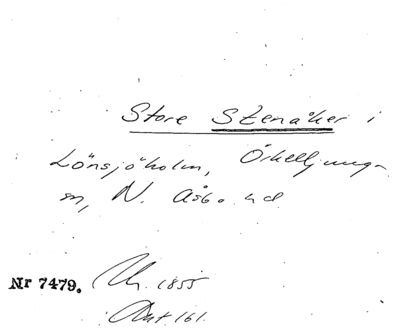 Store Stenåker i
Lönsjöholm, Örkelljunga
sn, N. Åsbo hd.
Nr 7479. 1855
Ant. 161.